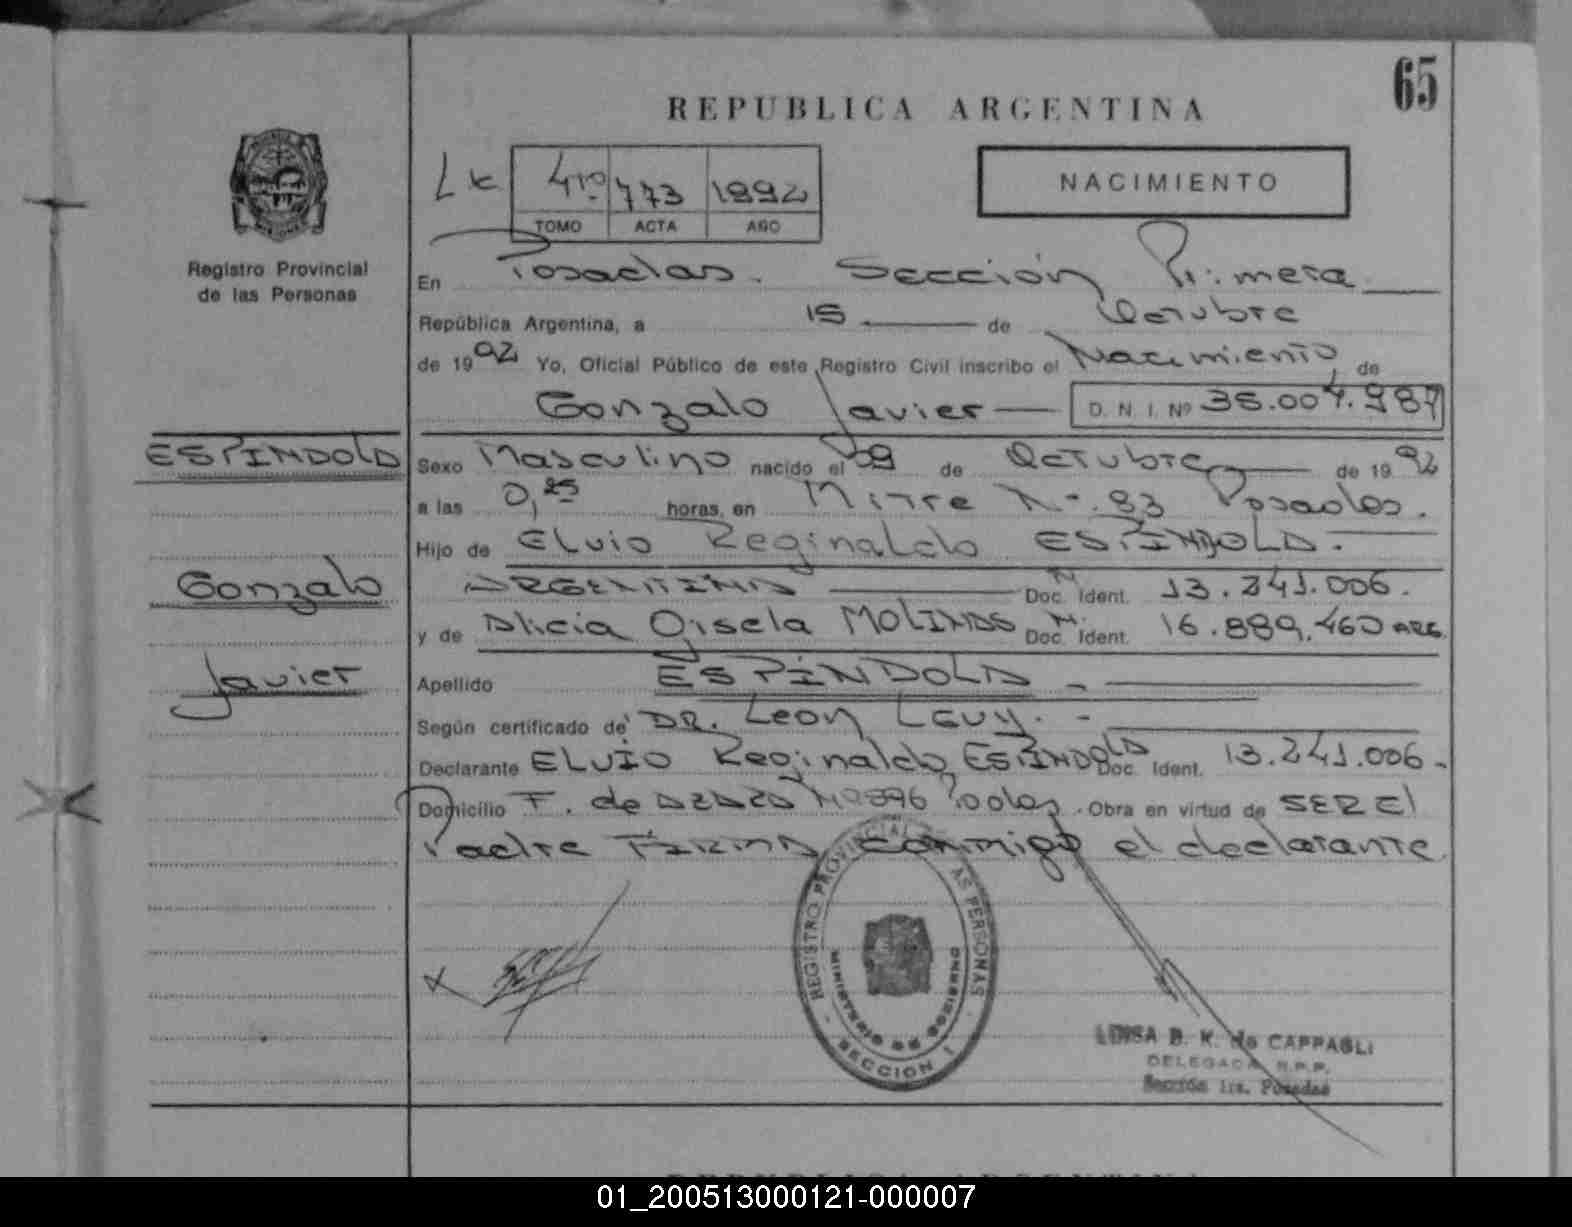 65
REPUBLICA ARGENTINA
4to 773 1992
TOMO ACTA AÑO
NACIMIENTO
Registro Provincial
de las Personas
En Posadas. Sección Primera
República Argentina, a 15 de Octubre
de 1992 Yo, Oficial Público de este Registro Civil inscribo el Nacimiento de
Gonzalo Javier D. N. I. Nº 36.004.987
ESPINDOLA
Sexo Masculino nacido el 09 de Octubre de 1992
a las 0,25 horas, en Mitre Nº. 83 Posadas.
Hijo de Elvio Reginaldo ESPINDOLA.
Gonzalo
ARGENTINA Doc. Ident. 13.241.006.
y de Alicia Gisela MOLINAS Doc. Ident. 16.889.460 ARG.
Javier
Apellido ESPINDOLA
Según certificado de DR. Leon Levy.
Declarante ELVIO Reginaldo ESPINDOLA Doc. Ident. 13.241.006
Domicilio F. de AZARA Nº 896 Obra en virtud de SER El
Padre FIRMA conmigo el declarante
REGISTRO PROVINCIAL DE LAS PERSONAS
MINISTERIO DE GOBIERNO
SECCION I
LUISA B. K. de CAPPAGLI
DELEGADA R.P.P.
Sección 1ra. Posadas
01_200513000121-000007